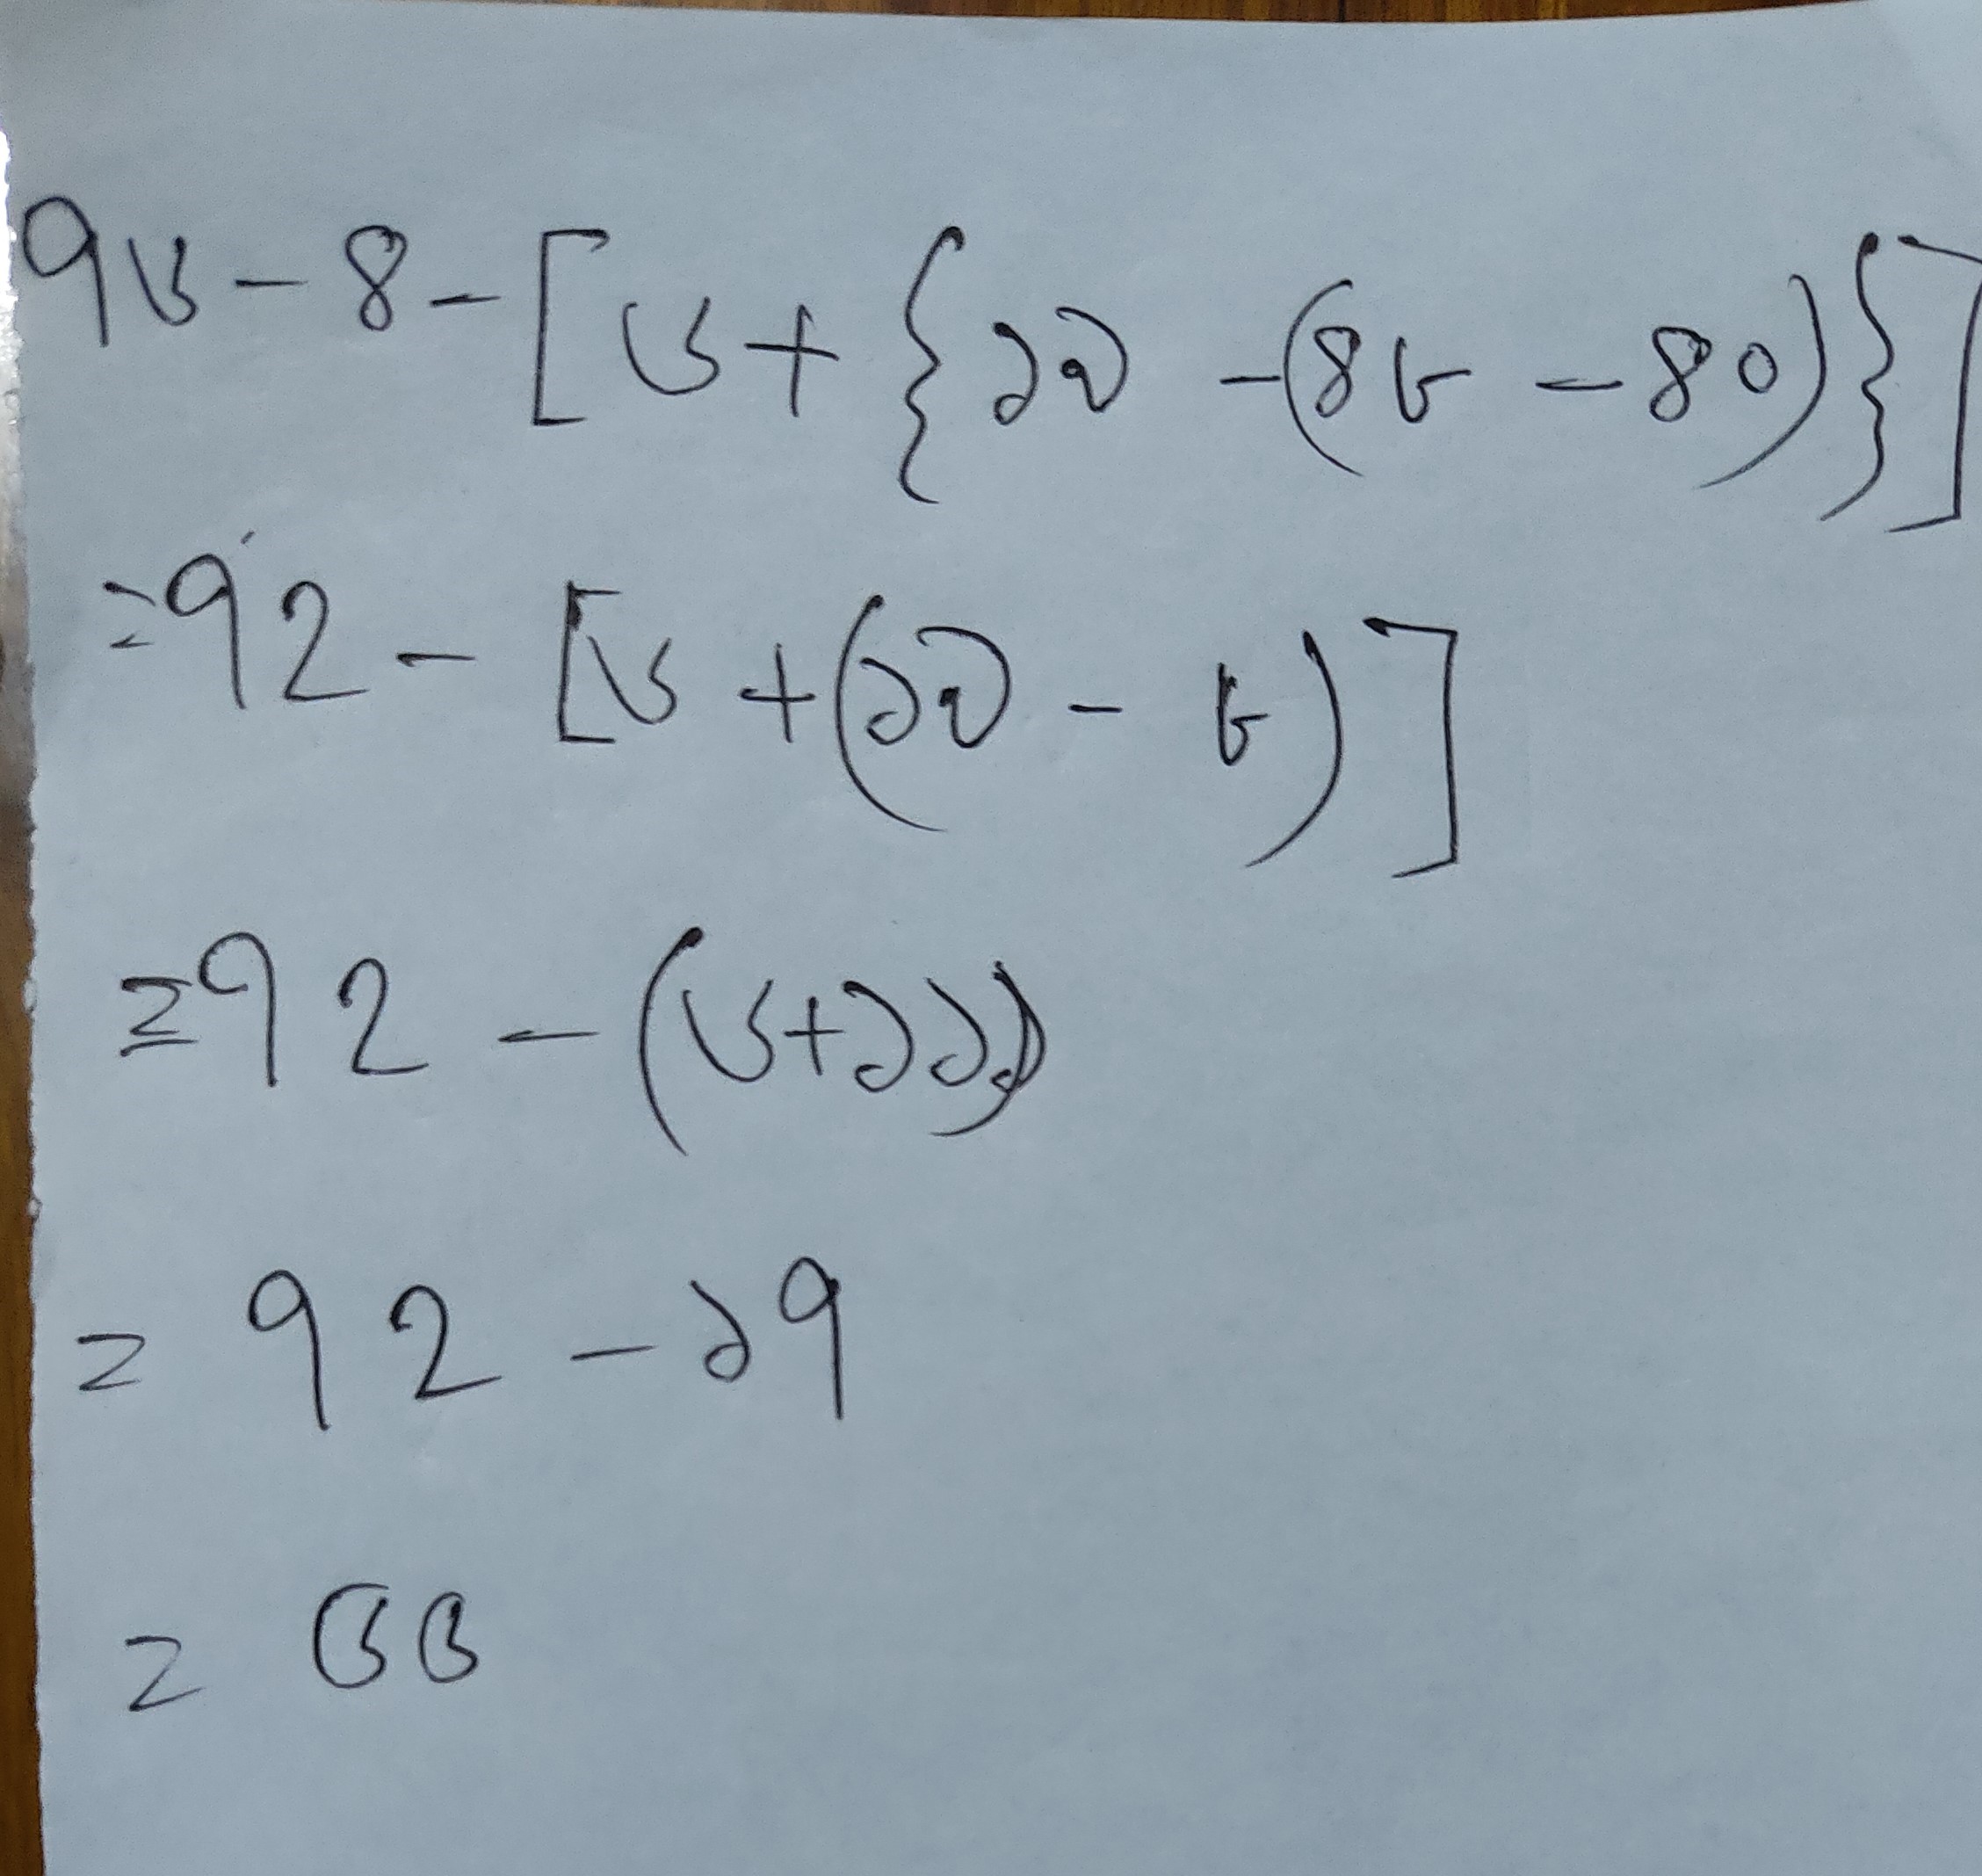 ৭৬-৪-[৬+{১৯-(৪৮-৪০)}]
=৭২-[৬+(১৯-৮)]
=৭২-(৬+১১)
=৭২-১৭
=৫৫